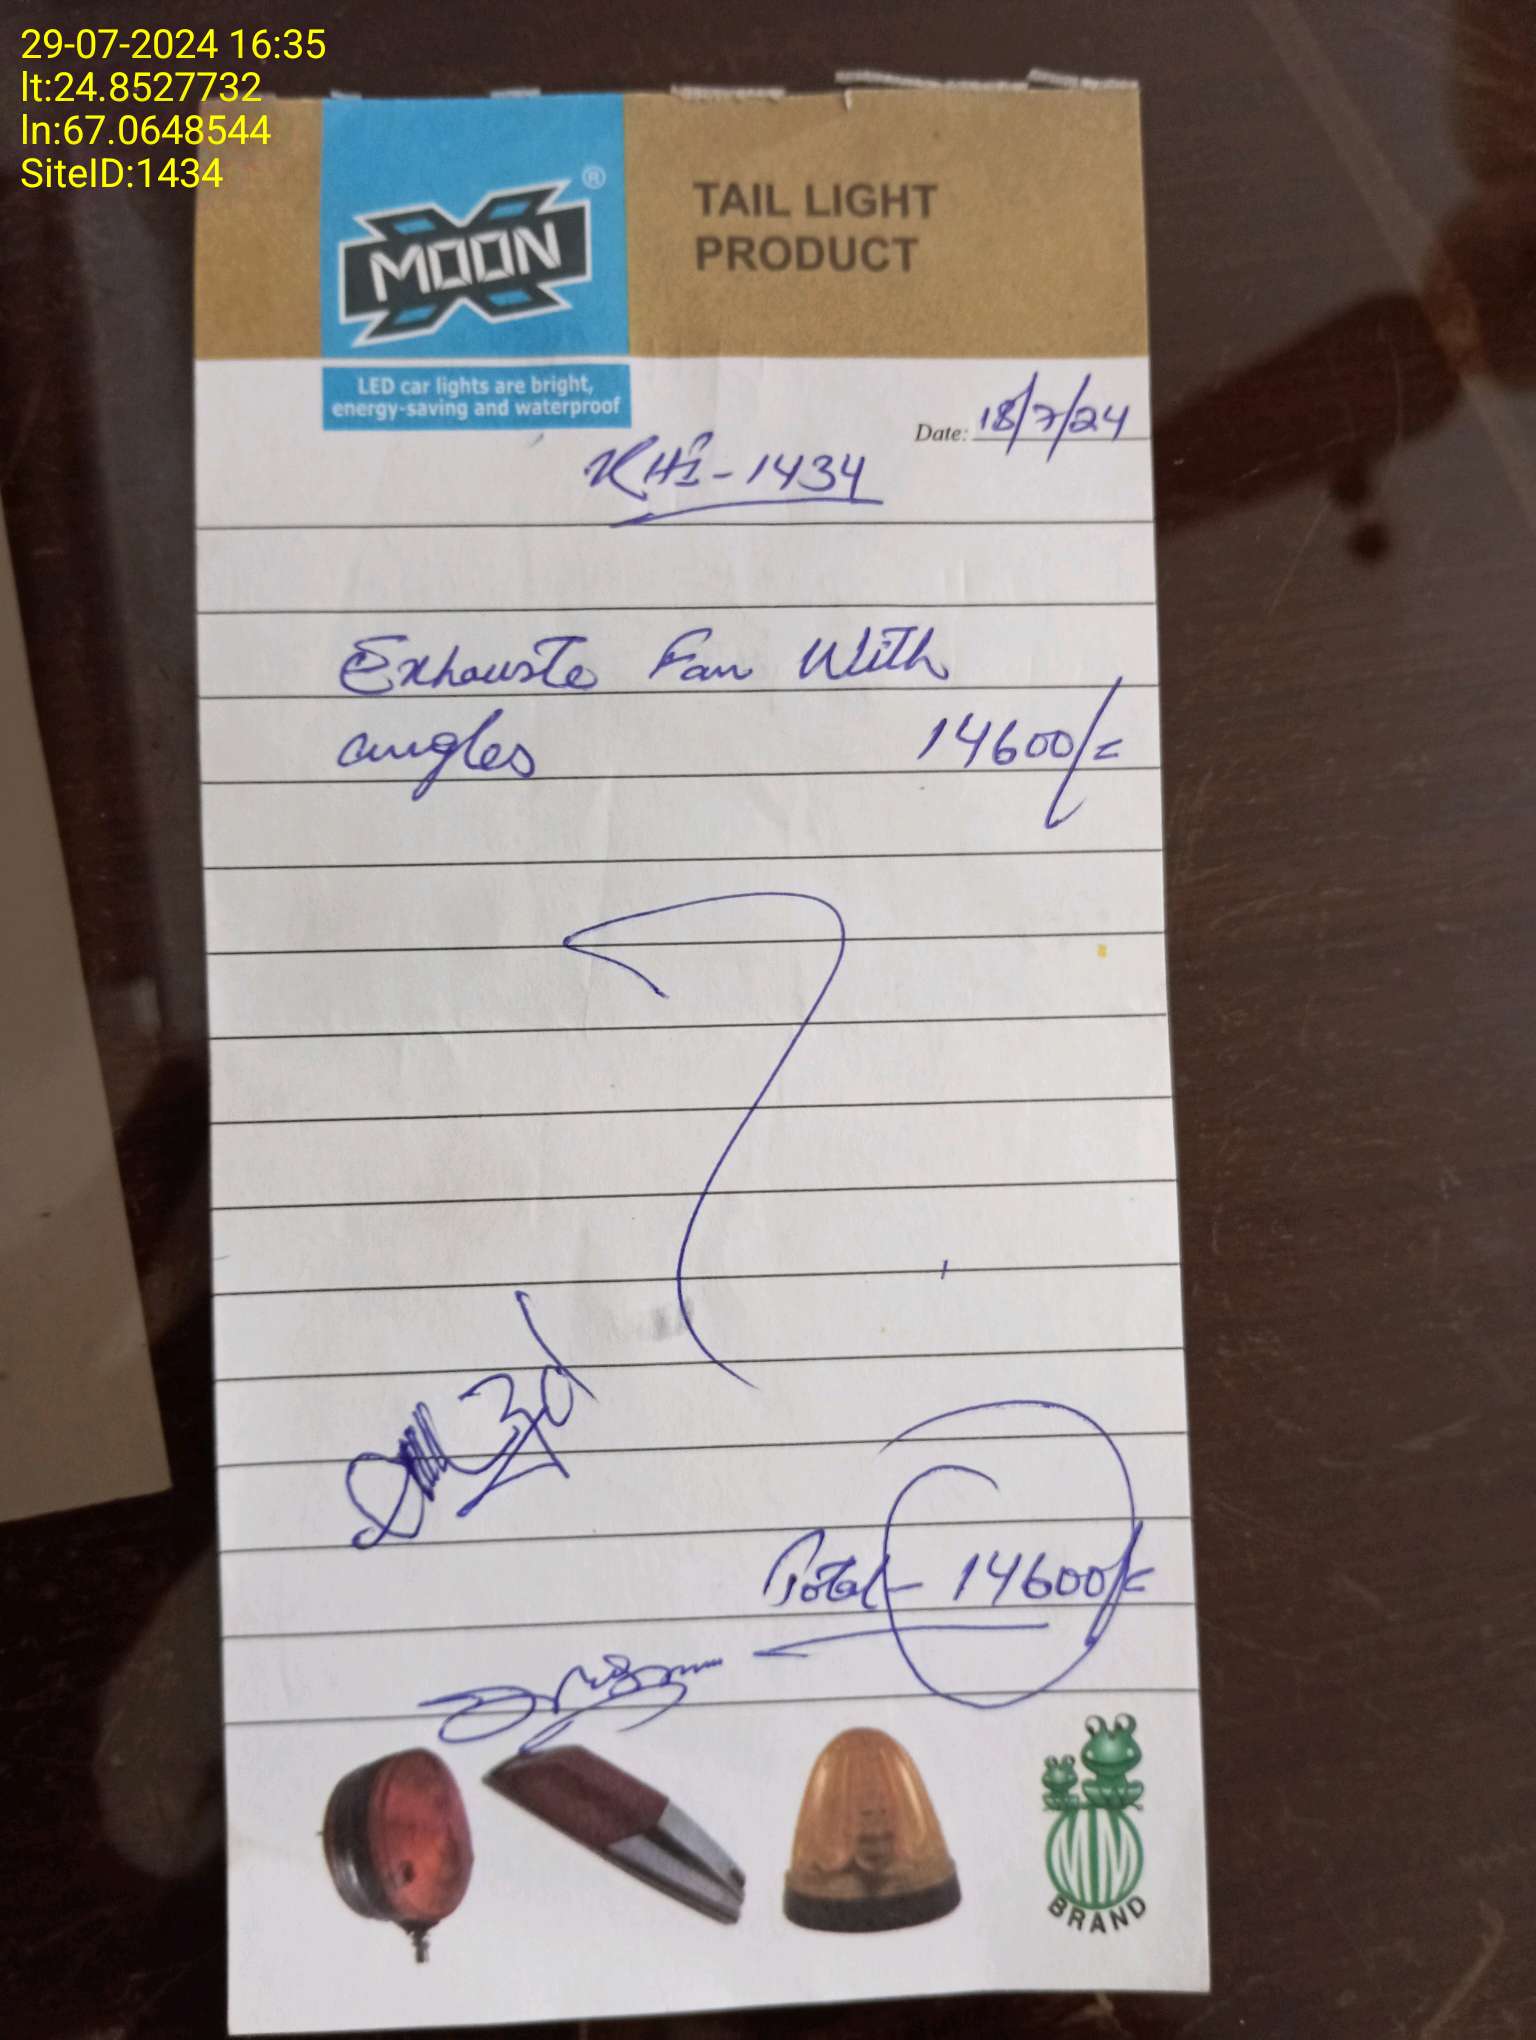 29-07-2024 16:35
lt:24.8527732
ln:67.0648544
SiteID:1434
MOON ®
TAIL LIGHT
PRODUCT
LED car lights are bright,
energy-saving and waterproof
Date: 18/7/24
KHI-1434
Exhauste Fan With
angles 14600/=
Total- 14600/=
MM
BRAND